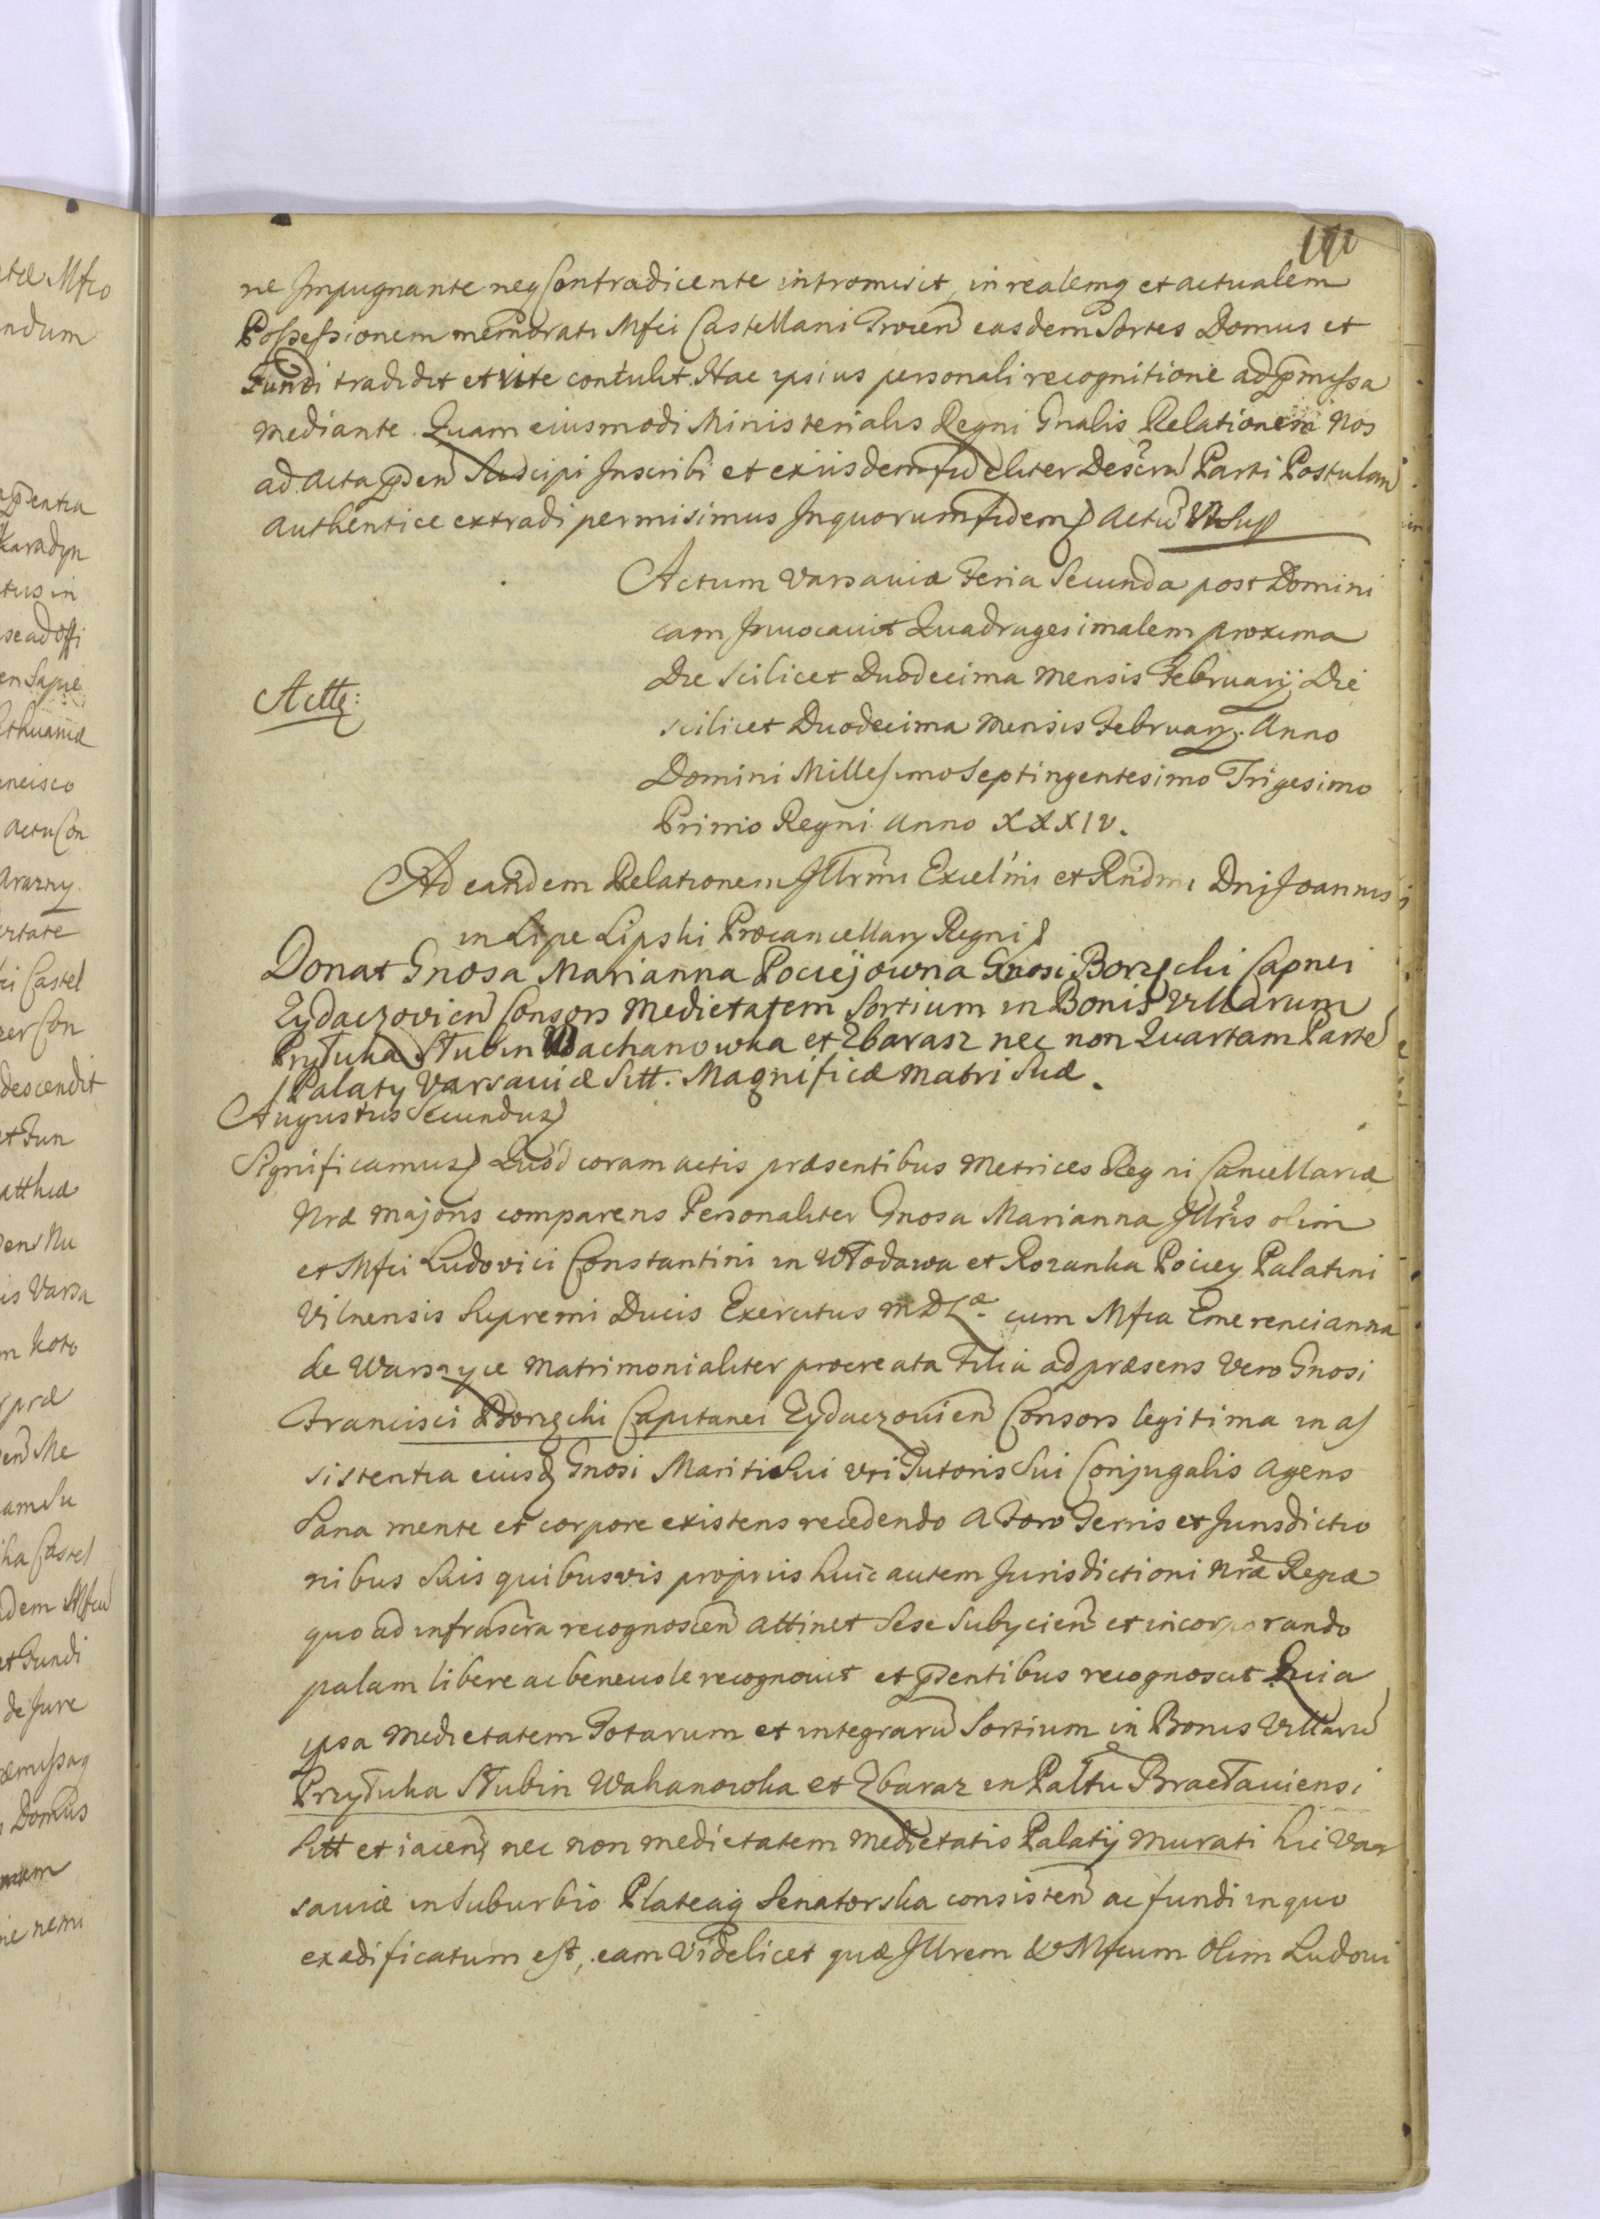 ne Impugnante neq Contradicente intromisit, in realemq et actualem
Possessionem memorati Mfci Castellani Trocen easdem Sortes Domus et
Fundi tradidit et rite contulit. Hac ipsius personali recognitione ad pmissa
mediante. Quam eiusmodi Ministerialis Regni Gnalis Relationem Nos
ad Acta psen Suscipi Inscribi et exiisdem fideliter Descra Parti Postulan
authentice extradi permisimus Inquorum fidem Actu Ut Sup
Actum Varsaviæ Feria Secunda post Domini
cam Invocavit Quadragesimalem proxima
Die scilicet Duodecima Mensis Februarij Die
scilicet Duodecima Mensis Februarij. Anno
Domini Millesimo Septingentesimo Trigesimo
Primo Regni Anno XXXIV.
Ad eandem Relationem Illrmi Excelmi et Rndmi Dnj Joannis
in Lipe Lipski Procancellary Regni
Donat Gnosa Marianna Pocieÿowna Gnosi Borzęcki Capnei
Zydaczovien Consors Medietatem Sortium in Bonis Villarum
Przyłuka Słubin Wachanowka et Zbarasz nec non Quartam Parte
Palaty Varsaviæ Sitt. Magnificæ Matri Suæ.
Augustus Secundus
Significamus Quod coram actis præsentibus Metrices Regni Cancellariæ
Nræ majoris comparens Personaliter Gnosa Marianna Illris olim
et Mfci Ludovici Constantini in Włodawa et Rozanka Pociey Palatini
Vilnensis Supremi Ducis Exercitus MDLæ cum Mfca Emerencianna
de Warszyce Matrimonialiter procreata Filia ad præsens Vero Gnosi
Francisci Borzęcki Capitanei Zydaczovien Consors legitima in as
sistentia eiusd Gnosi Mariti Sui Uti Tutoris Sui Conjugalis Agens
Sana mente et corpore existens recedendo A Foro Terris et Jurisdictio
nibus Suis quibusvis propriis huic autem Jurisdictioni Nræ Regiæ
quo ad infrascra recognoscen attinet Sese Subycien et incorporando
palam libere ac benevole recognovit et psentibus recognoscit Quia
ipsa Medietatem Totarum et integraru Sortium in Bonis Villaru
Przyłuka Słubin Wahanowka et Zbaraz in Paltu Bracłaviensi
Sitt et iacen, nec non medietatem medietatis Palatij murati hic Var
saviæ in Suburbio Plateaq Senatorska consisten ac fundi in quo
exædificatum est, eam Videlicet quæ Illrem & Mfcum Olim Ludovi
Actte: